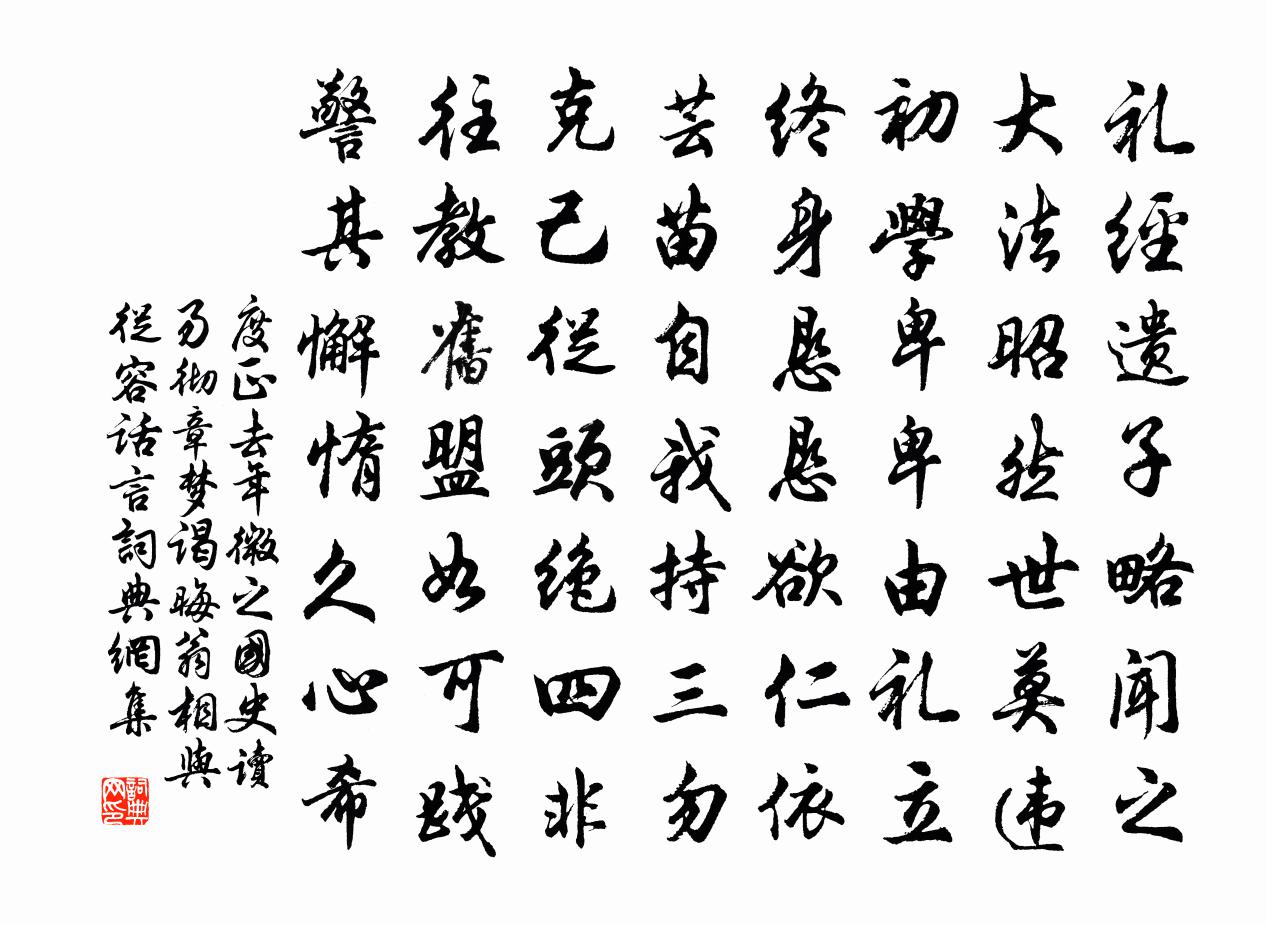 礼經遗子略闻之
大法昭然世莫违
初學卑卑由礼立
终身恳恳欲仁依
芸苗自我持三勿
克己從頭绝四非
往教舊盟如可践
警其懈惰久心希
度正去年微之國史讀
易彻章梦谒晦翁相與
從容话言詞典網集
詞典网印